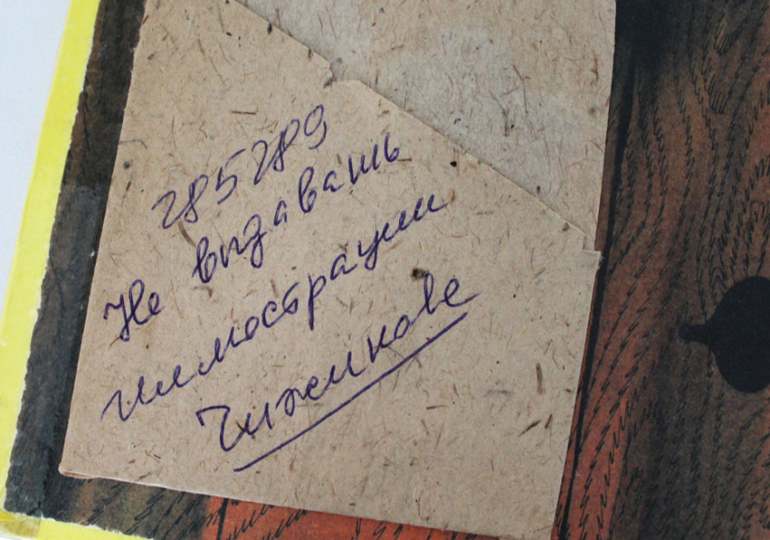 285289
Не выдавать
иллюстрации
Чижикове